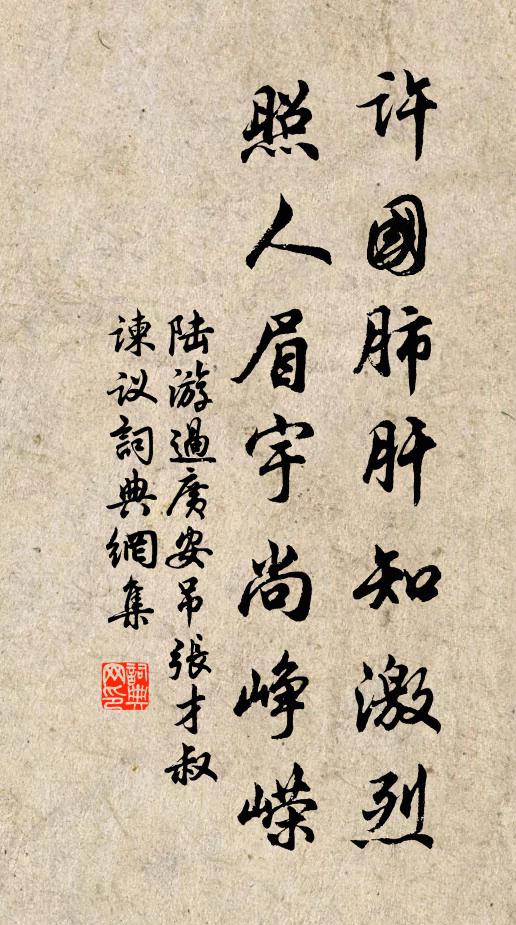 许國肺肝知激烈
照人眉宇尚峥嵘
陆游過廣安吊張才叔
谏议詞典網集
詞典网印